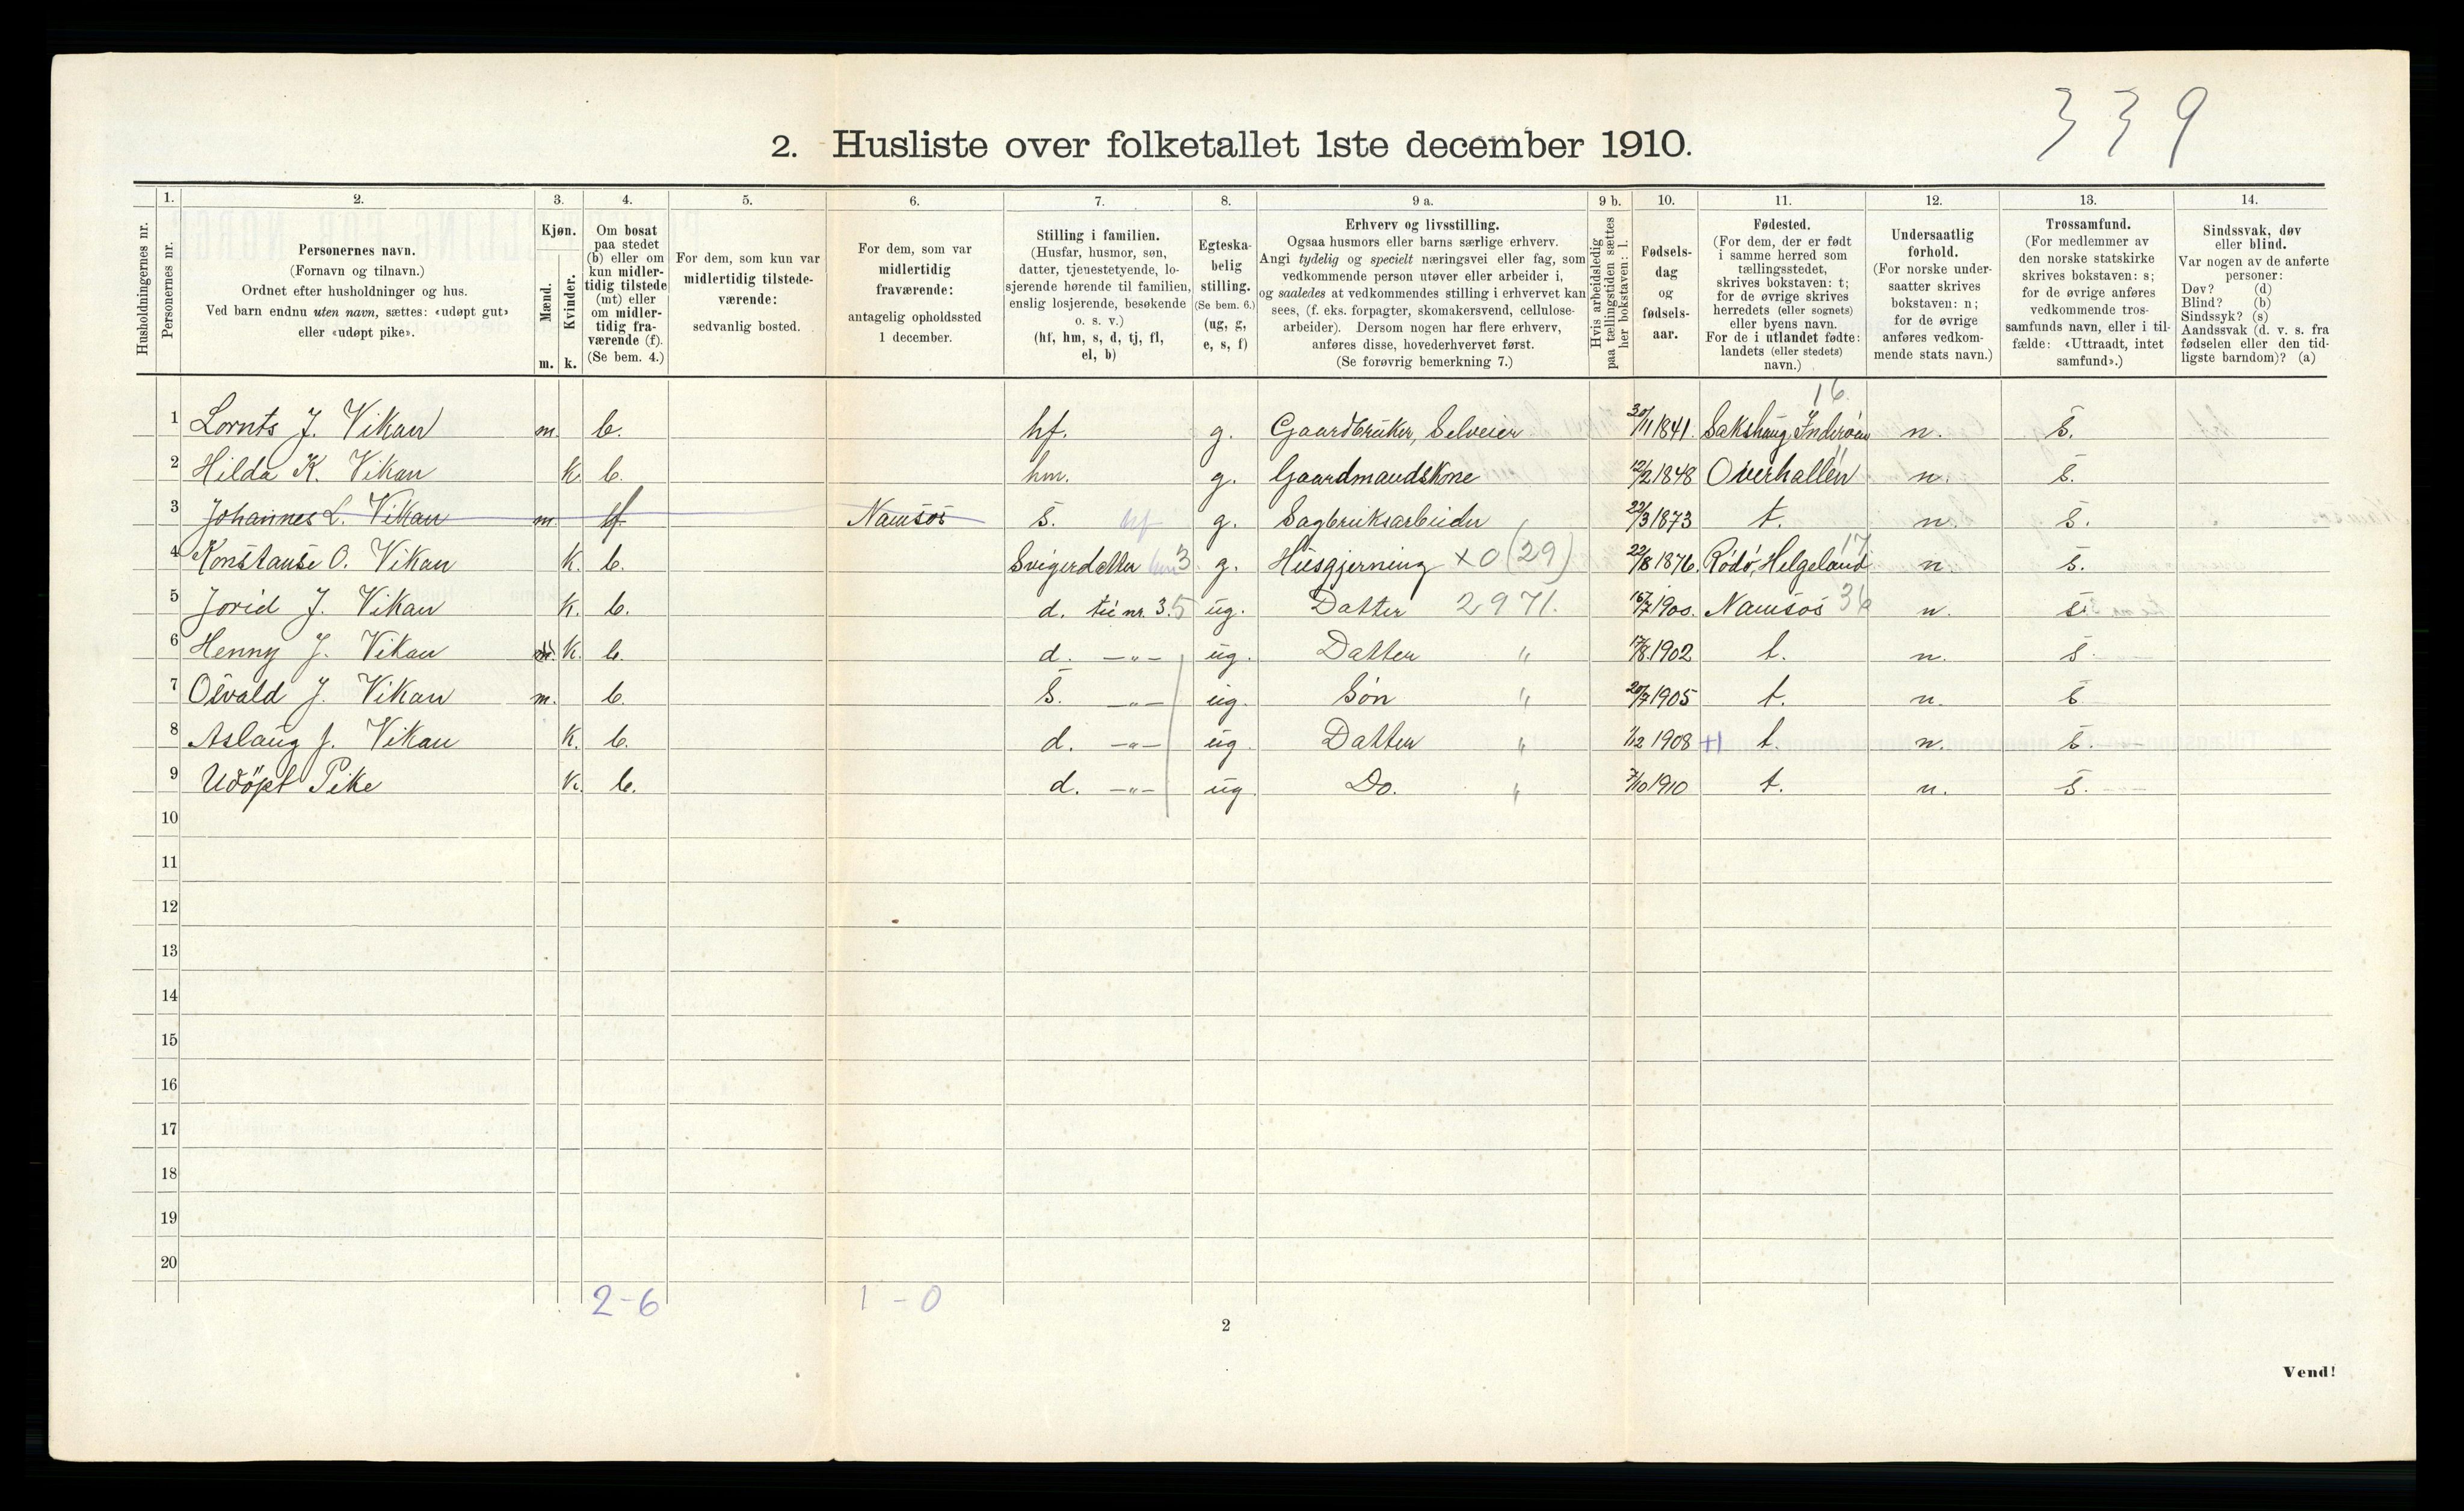 339
2. Husliste over folketallet 1ste december 1910.
1. 2. 3. 4. 5. 6. 7. 8. 9 a. 9 b. 10. 11. 12. 13. 14.
Husholdningernes nr.
Personernes nr.
Personernes navn.
(Fornavn og tilnavn.)
Ordnet efter husholdninger og hus.
Ved barn endnu uten navn, sættes: «udøpt gut»
eller «udøpt pike».
Kjøn.
Mænd.
m.
Kvinder.
k.
Om bosat
paa stedet
(b) eller om
kun midler-
tidig tilstede
(mt) eller
om midler-
tidig fra-
værende (f).
(Se bem. 4.)
For dem, som kun var
midlertidig tilstede-
værende:
sedvanlig bosted.
For dem, som var
midlertidig
fraværende:
antagelig opholdssted
1 december.
Stilling i familien.
(Husfar, husmor, søn,
datter, tjenestetyende, lo-
sjerende hørende til familien,
enslig losjerende, besøkende
o. s. v.)
(hf, hm, s, d, tj, fl,
el, b)
Egteska-
belig
stilling.
(Se bem. 6.)
(ug, g,
e, s, f)
Erhverv og livsstilling.
Ogsaa husmors eller barns særlige erhverv.
Angi tydelig og specielt næringsvei eller fag, som
vedkommende person utøver eller arbeider i,
og saaledes at vedkommendes stilling i erhvervet kan
sees, (f. eks. forpagter, skomakersvend, cellulose-
arbeider). Dersom nogen har flere erhverv,
anføres disse, hovederhvervet først.
(Se forøvrig bemerkning 7.)
Hvis arbeidsledig
paa tællingstiden sættes
her bokstaven: l.
Fødsels-
dag
og
fødsels-
aar.
Fødested.
(For dem, der er født
i samme herred som
tællingsstedet,
skrives bokstaven: t;
for de øvrige skrives
herredets (eller sognets)
eller byens navn.
For de i utlandet fødte:
landets (eller stedets)
navn.)
Undersaatlig
forhold.
(For norske under-
saatter skrives
bokstaven: n;
for de øvrige
anføres vedkom-
mende stats navn.)
Trossamfund.
(For medlemmer av
den norske statskirke
skrives bokstaven: s;
for de øvrige anføres
vedkommende tros-
samfunds navn, eller i til-
fælde: «Uttraadt, intet
samfund».)
Sindssvak, døv
eller blind.
Var nogen av de anførte
personer:
Døv? (d)
Blind? (b)
Sindssyk? (s)
Aandssvak (d. v. s. fra
fødselen eller den tid-
ligste barndom)? (a)
16
1 Lornts J. Vikan m. b. hf. g. Gaardbruker, Selveier 30/11 1841. Sakshaug, Inderøen n. s.
2 Hilda K. Vikan k. b. hm. g. Gaardmandskone 12/2 1848 Overhallen n. s.
3 Johannes L. Vikan m. f Namsos s. hf g. Sagbruksarbeider 22/3 1873 t. n. s.
4 Konstanse O. Vikan k. b. Svigerdatter hm 3 g. Husgjerning x0 (29) 22/8 1876. Rødø, Helgeland 17 n. s.
5 Jorid J. Vikan k. b. d. til nr. 3. 5 ug. Datter 2971. 16/7 1900. Namsos 36 n. s.
6 Henny J. Vikan k. b. d. —"— ug. Datter " 17/8 1902 t. n. s.
7 Osvald J. Vikan m. b. s. —"— ug. Søn " 20/7 1905 t. n. s.
8 Aslaug J. Vikan k. b. d. —"— ug. Datter " 1/12 1908 t. n. s.
9 Udöpt Pike k. b. d. —"— ug Do. " 7/10 1910 t. n. s.
10
11
12
13
14
15
16
17
18
19
20
2-6 1-0
2
Vend!